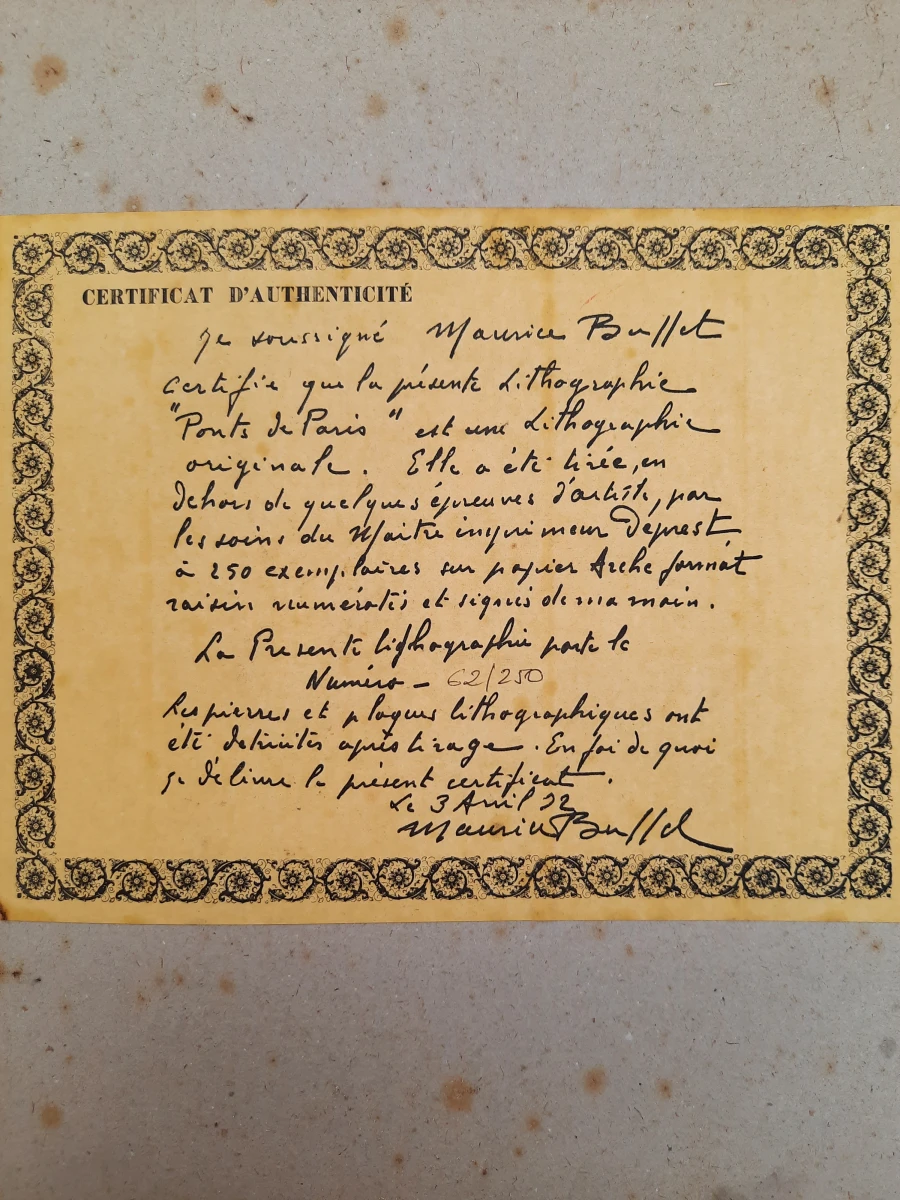 CERTIFICAT D'AUTHENTICITÉ
Je soussigné Maurice Buffet
certifie que la présente Lithographie
"Ponts de Paris" est une Lithographie
originale. Elle a été tirée, en
dehors de quelques épreuves d'artiste, par
les soins du Maitre imprimeur Deprest
à 250 exemplaires sur papier Arche format
raisin numérotés et signés de ma main.
La Presente lithographie porte le
Numéro - 62/250
Les pierres et plaques lithographiques ont
été detruites après tirage. En foi de quoi
je délivre le présent certificat.
Le 3 Avril
Maurice Buffet